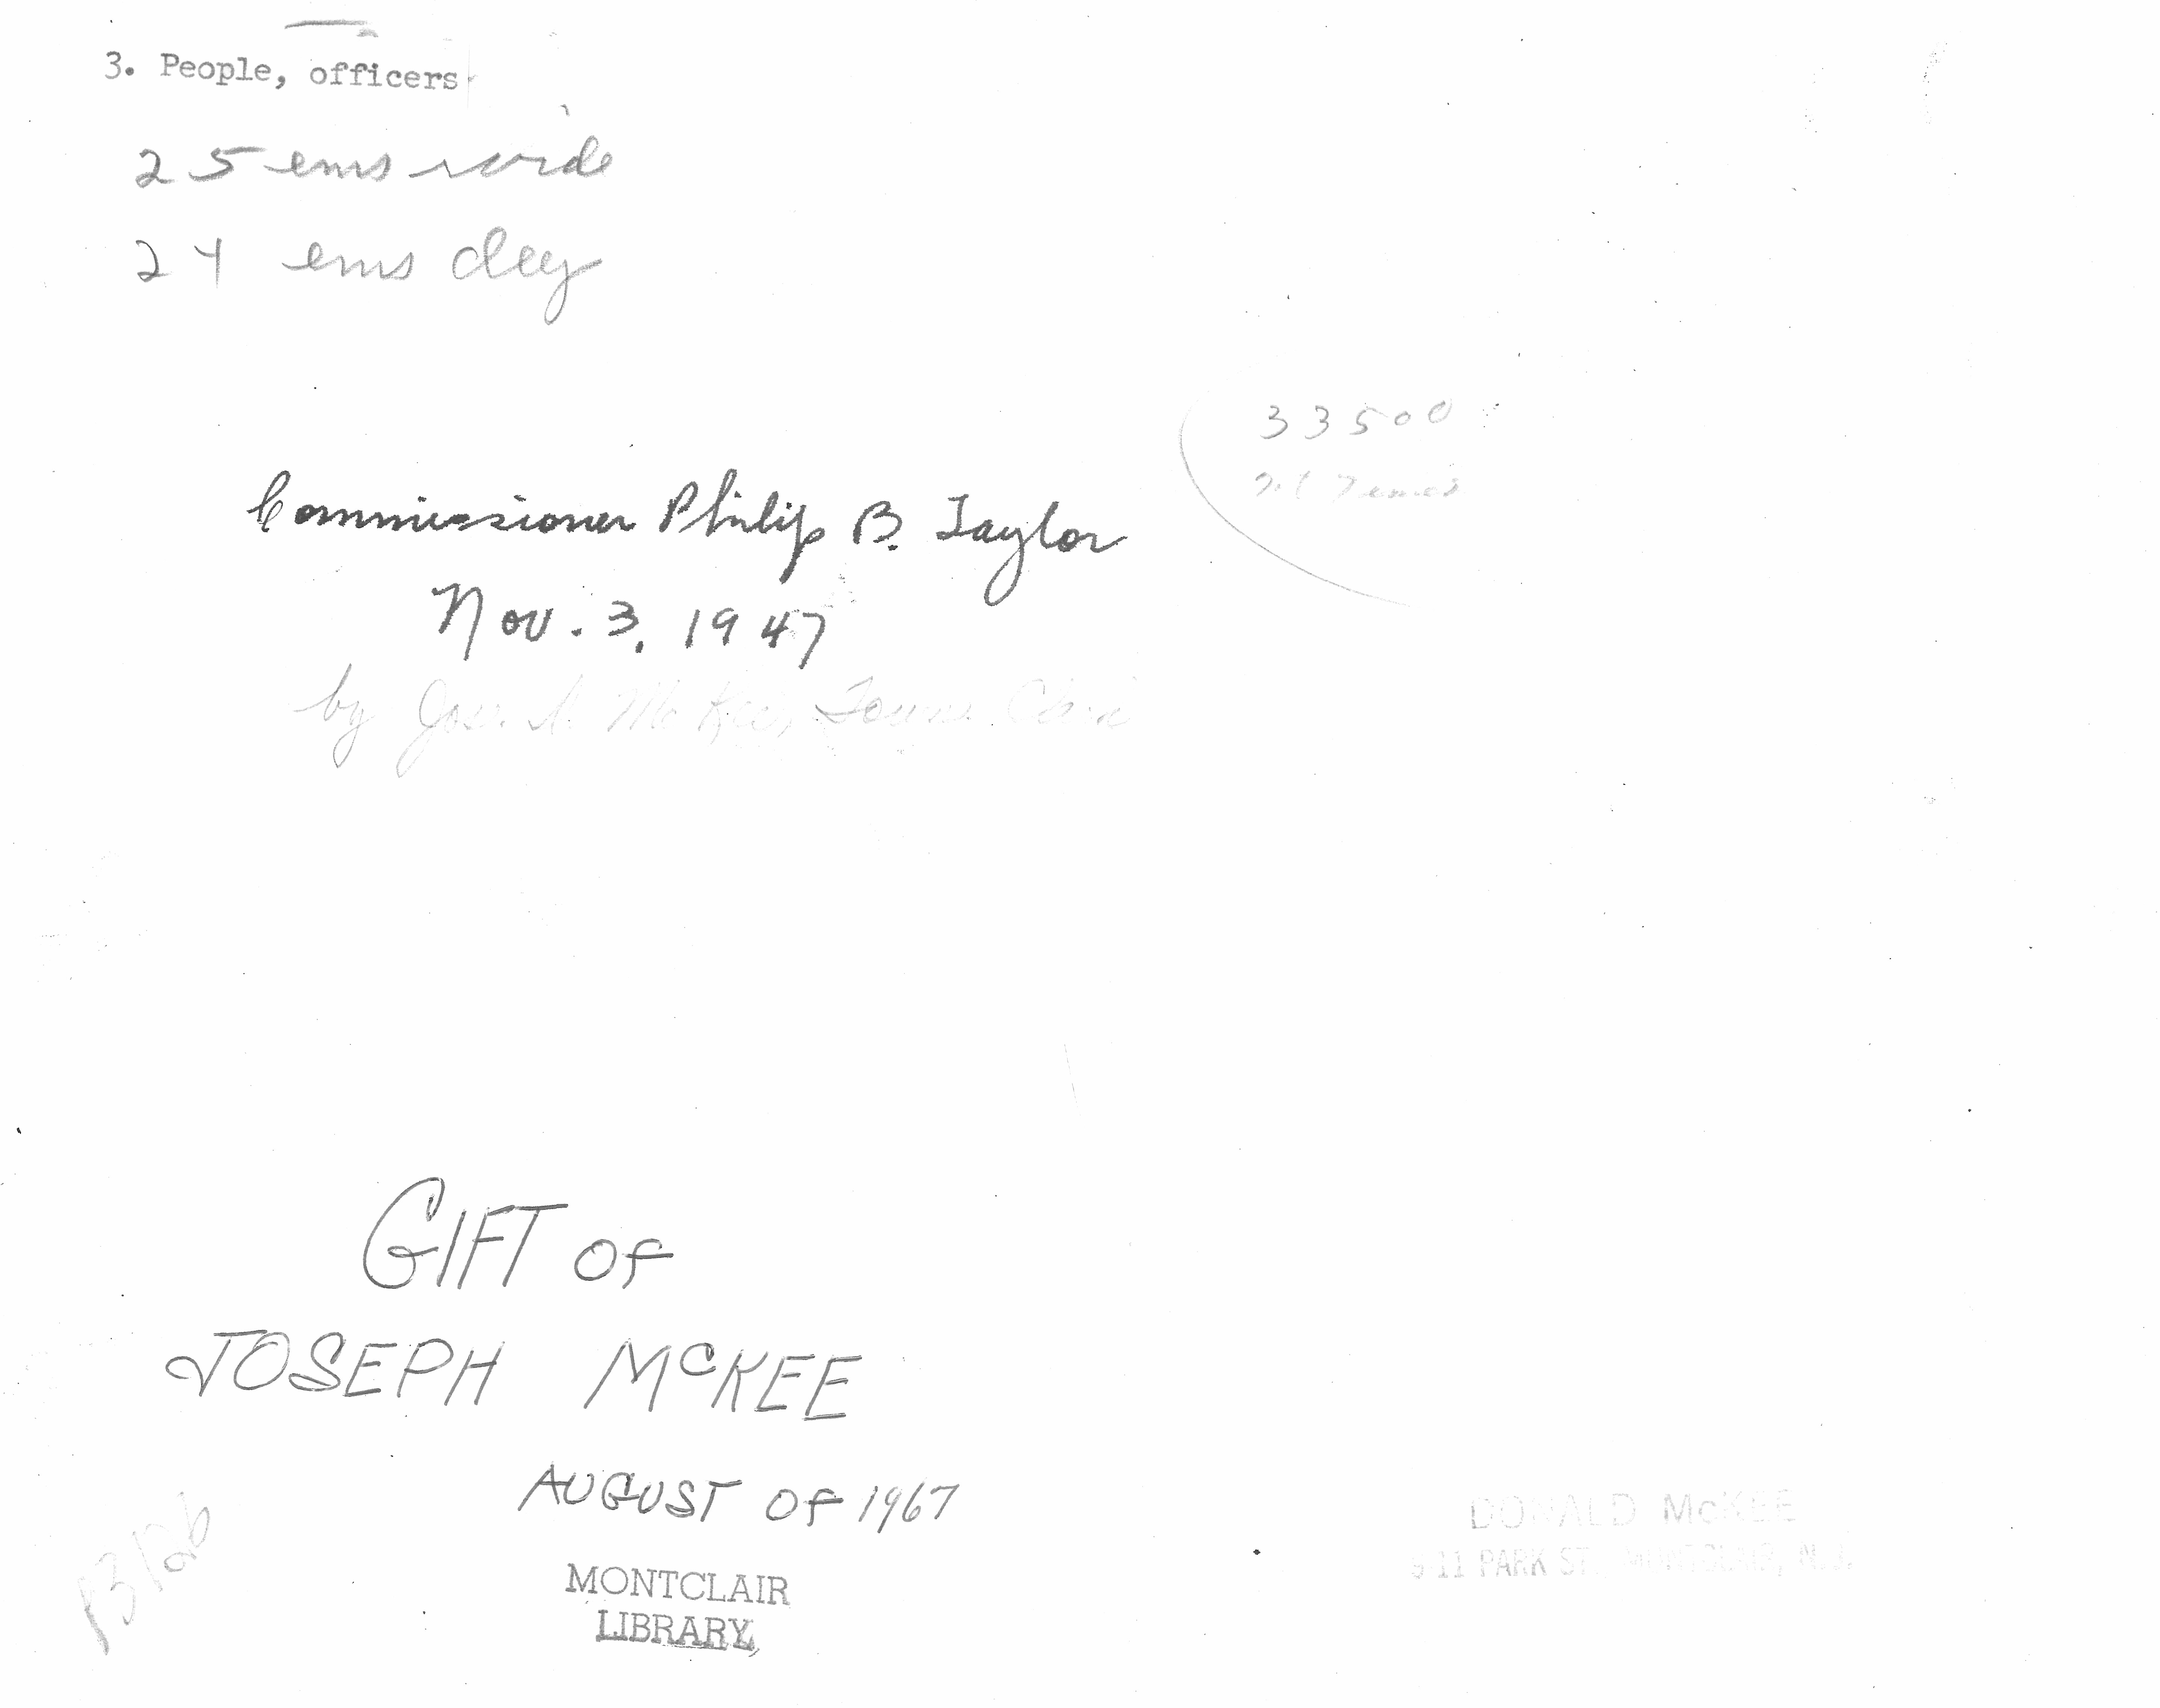 3. People, officers
25 ems wide
24 ems deep
33500
Commissioner Philip B. Taylor
Nov. 3, 1947
by Jos. McKee, Town
GIFT OF
JOSEPH McKEE
AUGUST OF 1967
MONTCLAIR
LIBRARY
DONALD McKEE
9-11 PARK ST. MONTCLAIR, N.J.